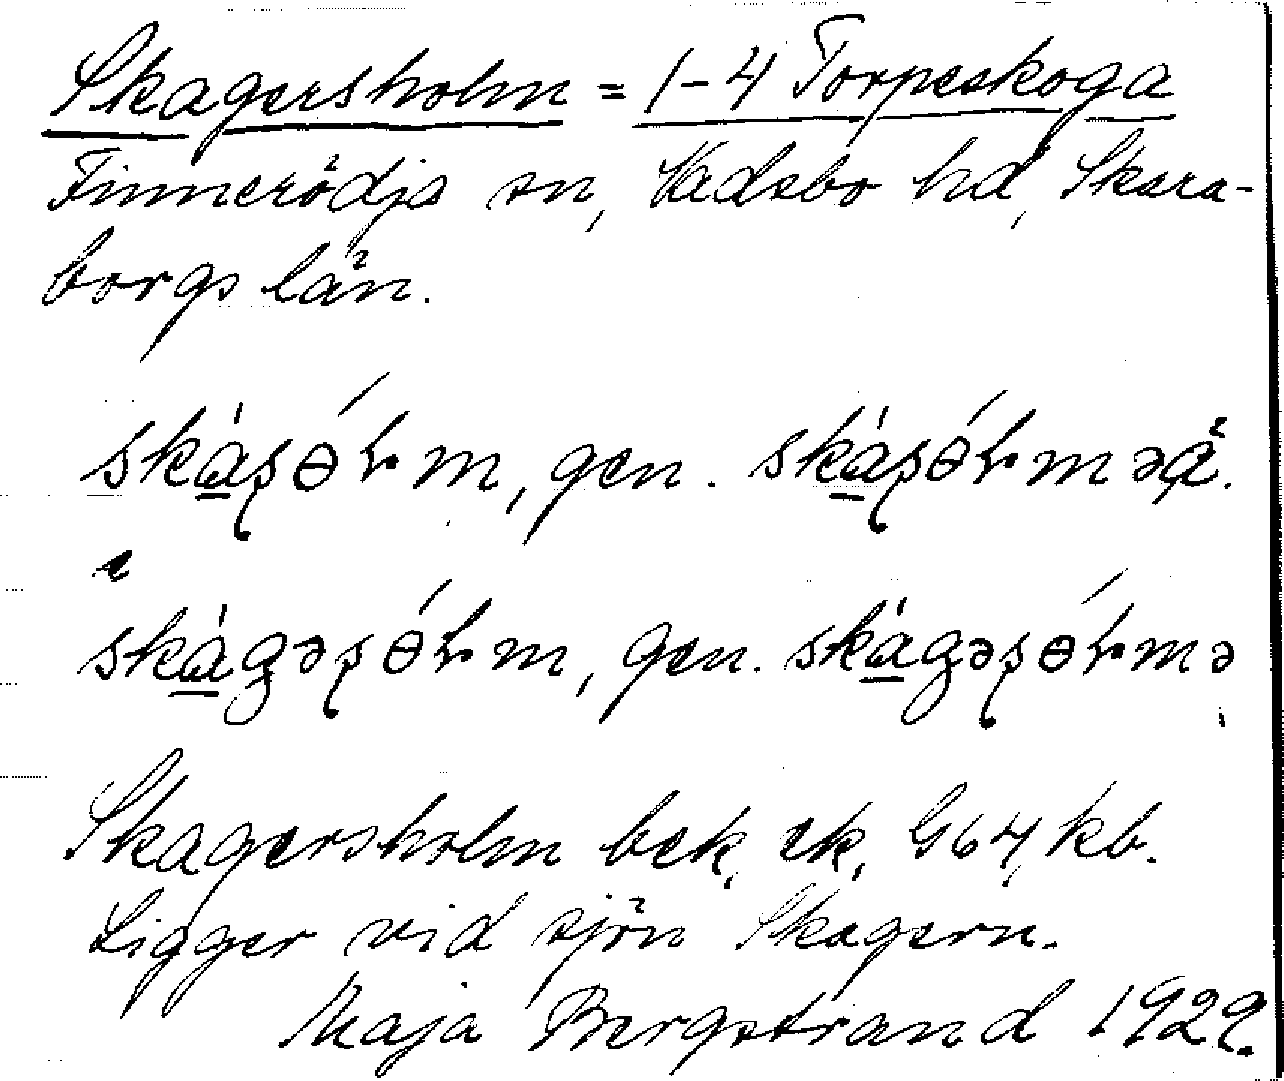 Skagersholm = 1-4 Torpeskoga
Finnerödja sn, Vadsbo hd, Skara-
borgs län.
skáʂɵ́ɽm, gen. skáʂɵ́ɽmə
skágəʂɵ́ɽm, gen. skágəʂɵ́ɽmə
Skagersholm bek, ek, G64, kb.
Ligger vid sjön Skagern.
Maja Bergstrand 1929.